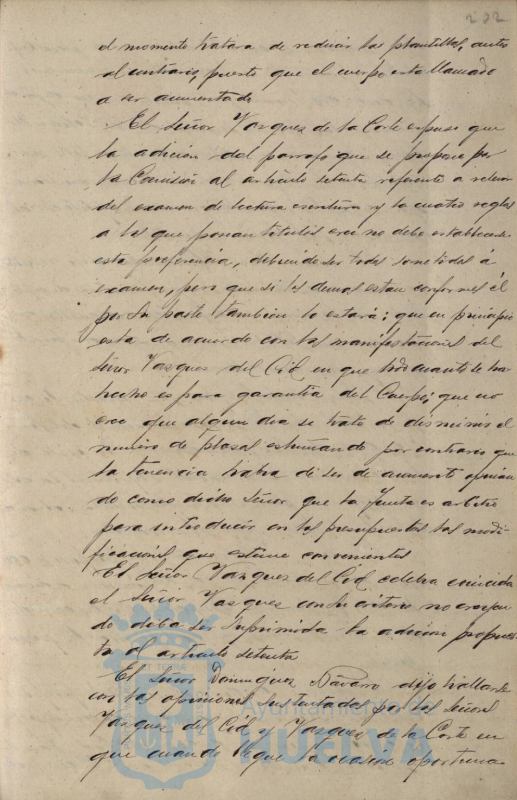 232
el momento tratara de reducir las plantillas, antes
al contrario, puesto que el cuerpo esta llamado
a ser aumentado
El Señor Vazquez de la Corte expuso que
la adicion del parrafo que se propone por
la Comision al articulo setenta referente a relevar
del examen de lectura escritura y la cuatro reglas
a los que posean titulos cree no debe establecerse
esta preferencia, debiendo ser todos sometidos á
examen, pero que si los demas estan conformes él
por su parte tambien lo estará; que en principio
esta de acuerdo con las manifestaciones del
Señor Vazquez del Cid en que todo cuanto se ha
hecho es para garantia del Cuerpo; que no
cree que algun dia se trate de disminuir el
numero de plazas estimando por contrario que
la tendencia habra de ser de aumento opinan
do como dicho Señor que la Junta es arbitro
para introducir en los presupuestos las modi-
ficaciones que estime convenientes
El Señor Vazquez del Cid celebra coincida
el Señor Vazquez con su criterio no creyen
do deba ser suprimida la adicion propues
ta al articulo setenta
El Señor Dominguez Navarro dijo hallarse
con las opiniones sustentadas por los Señores
Vazquez del Cid y Vazquez de la Corte en
que cuando llegue la ocasion oportuna
Ayuntamiento de
HUELVA